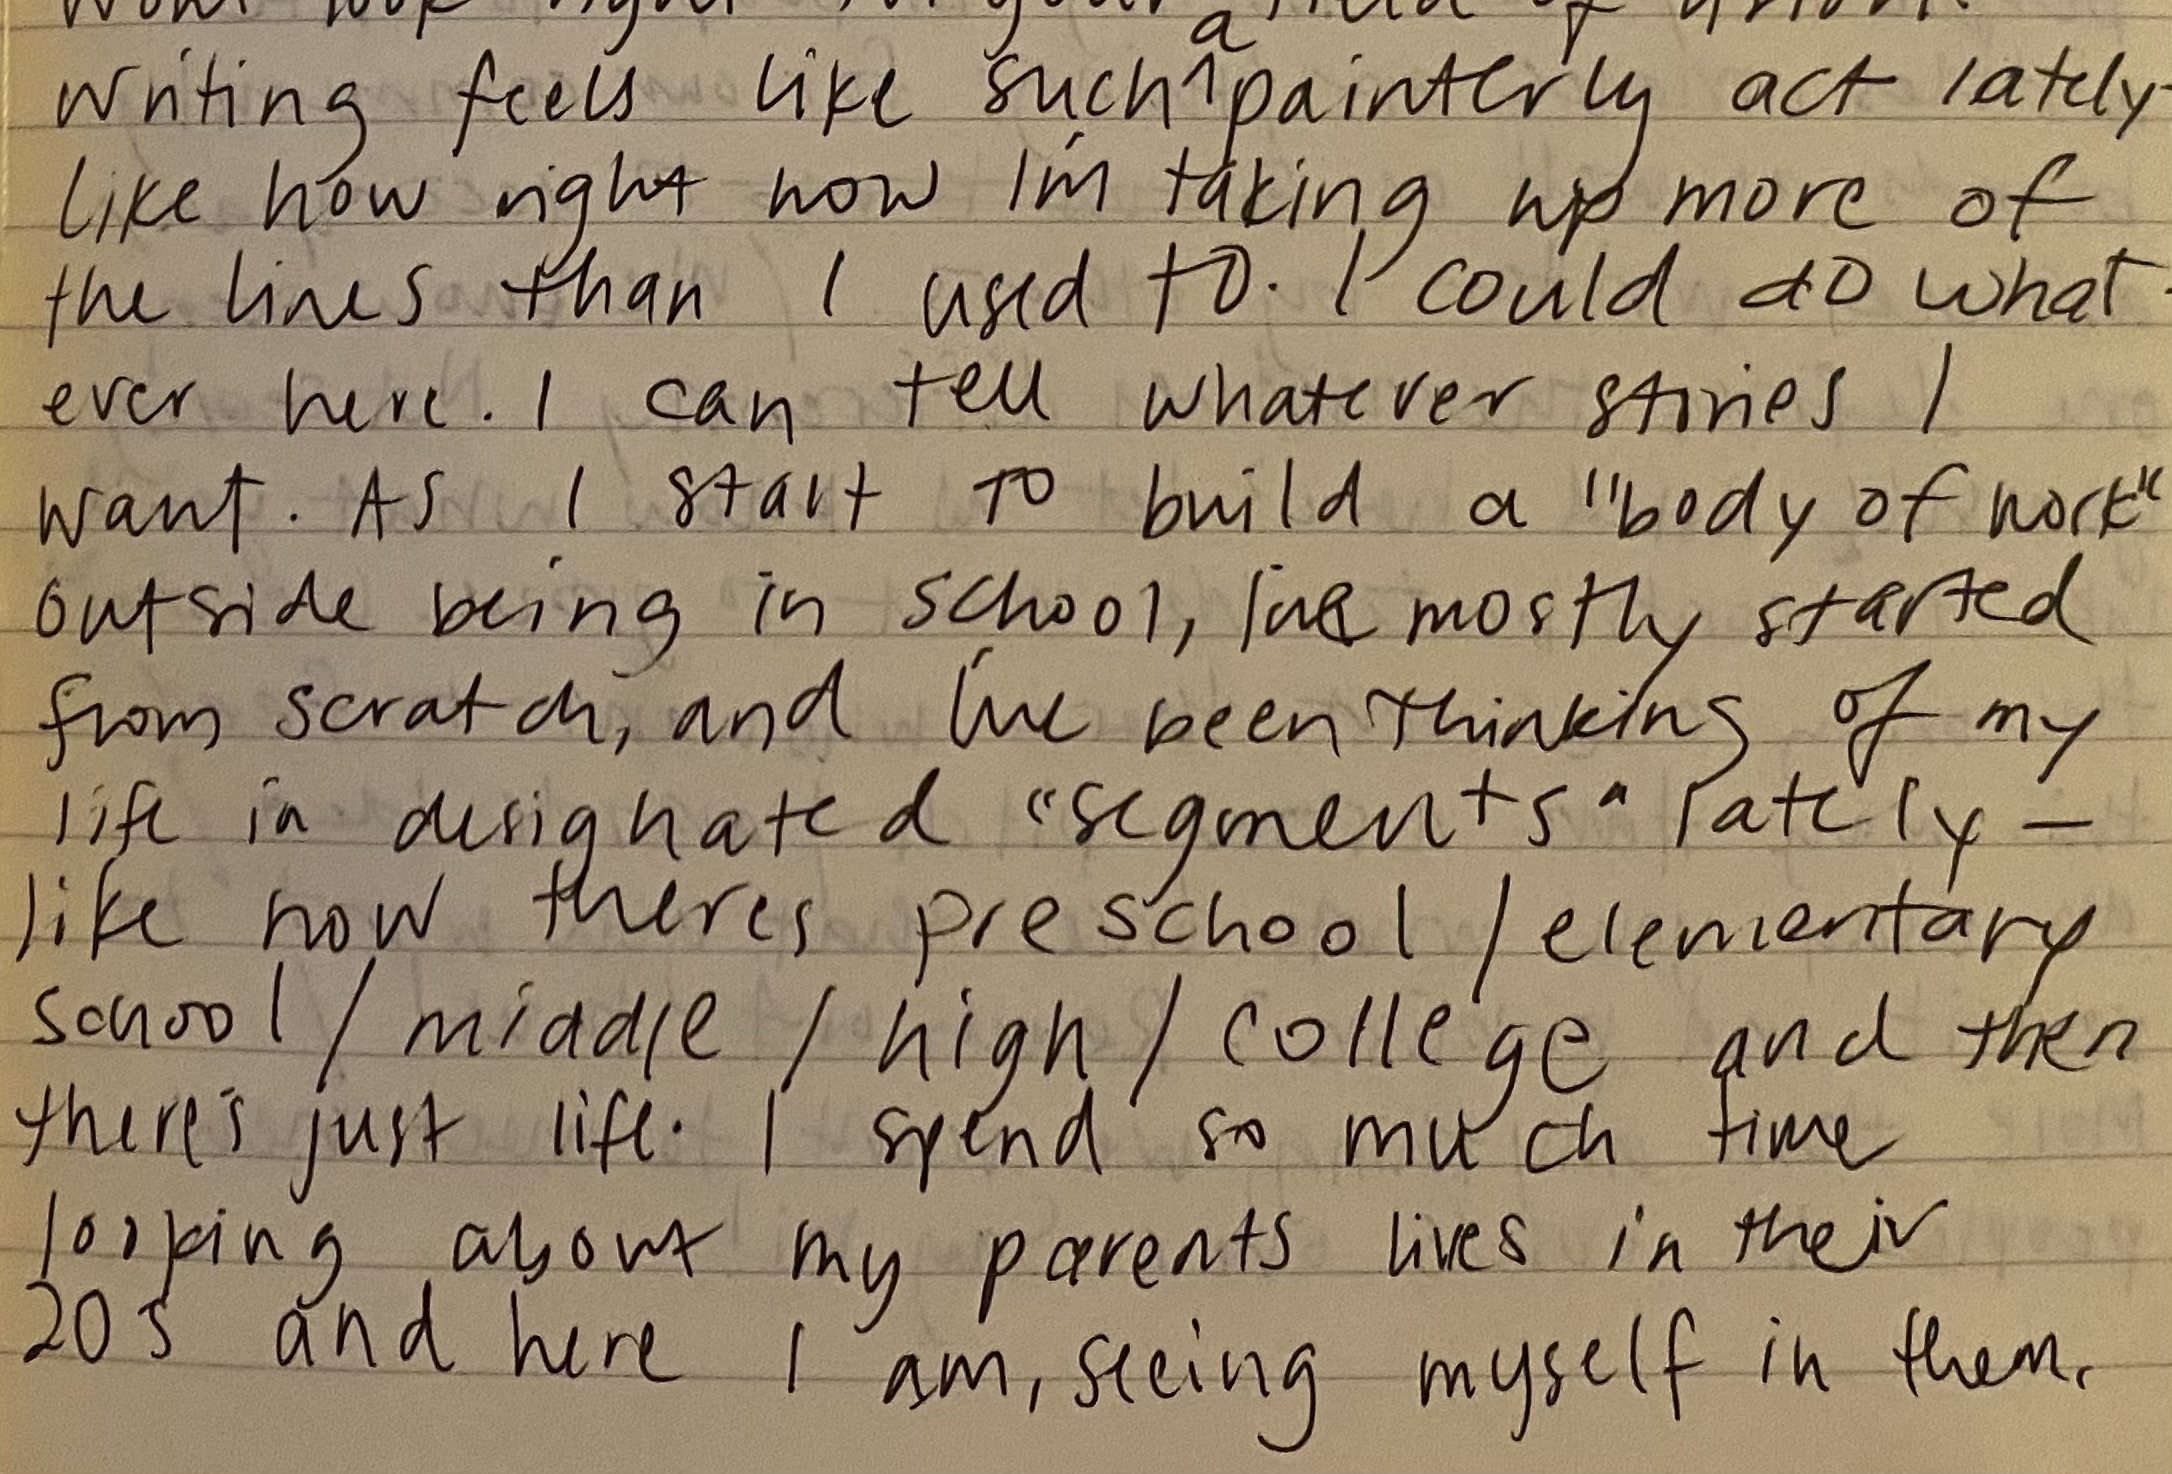 look
writing feels like such a painterly act lately-
like how right now I'm taking up more of
the lines than I used to. I could do what-
ever here. I can tell whatever stories I
want. As I start to build a "body of work"
outside being in school, I've mostly started
from scratch, and I've been thinking of my
life in designated "segments" lately —
like how theres preschool / elementary
school / middle / high / college and then
there's just life. I spend so much time
looking about my parents lives in their
20s and here I am, seeing myself in them.